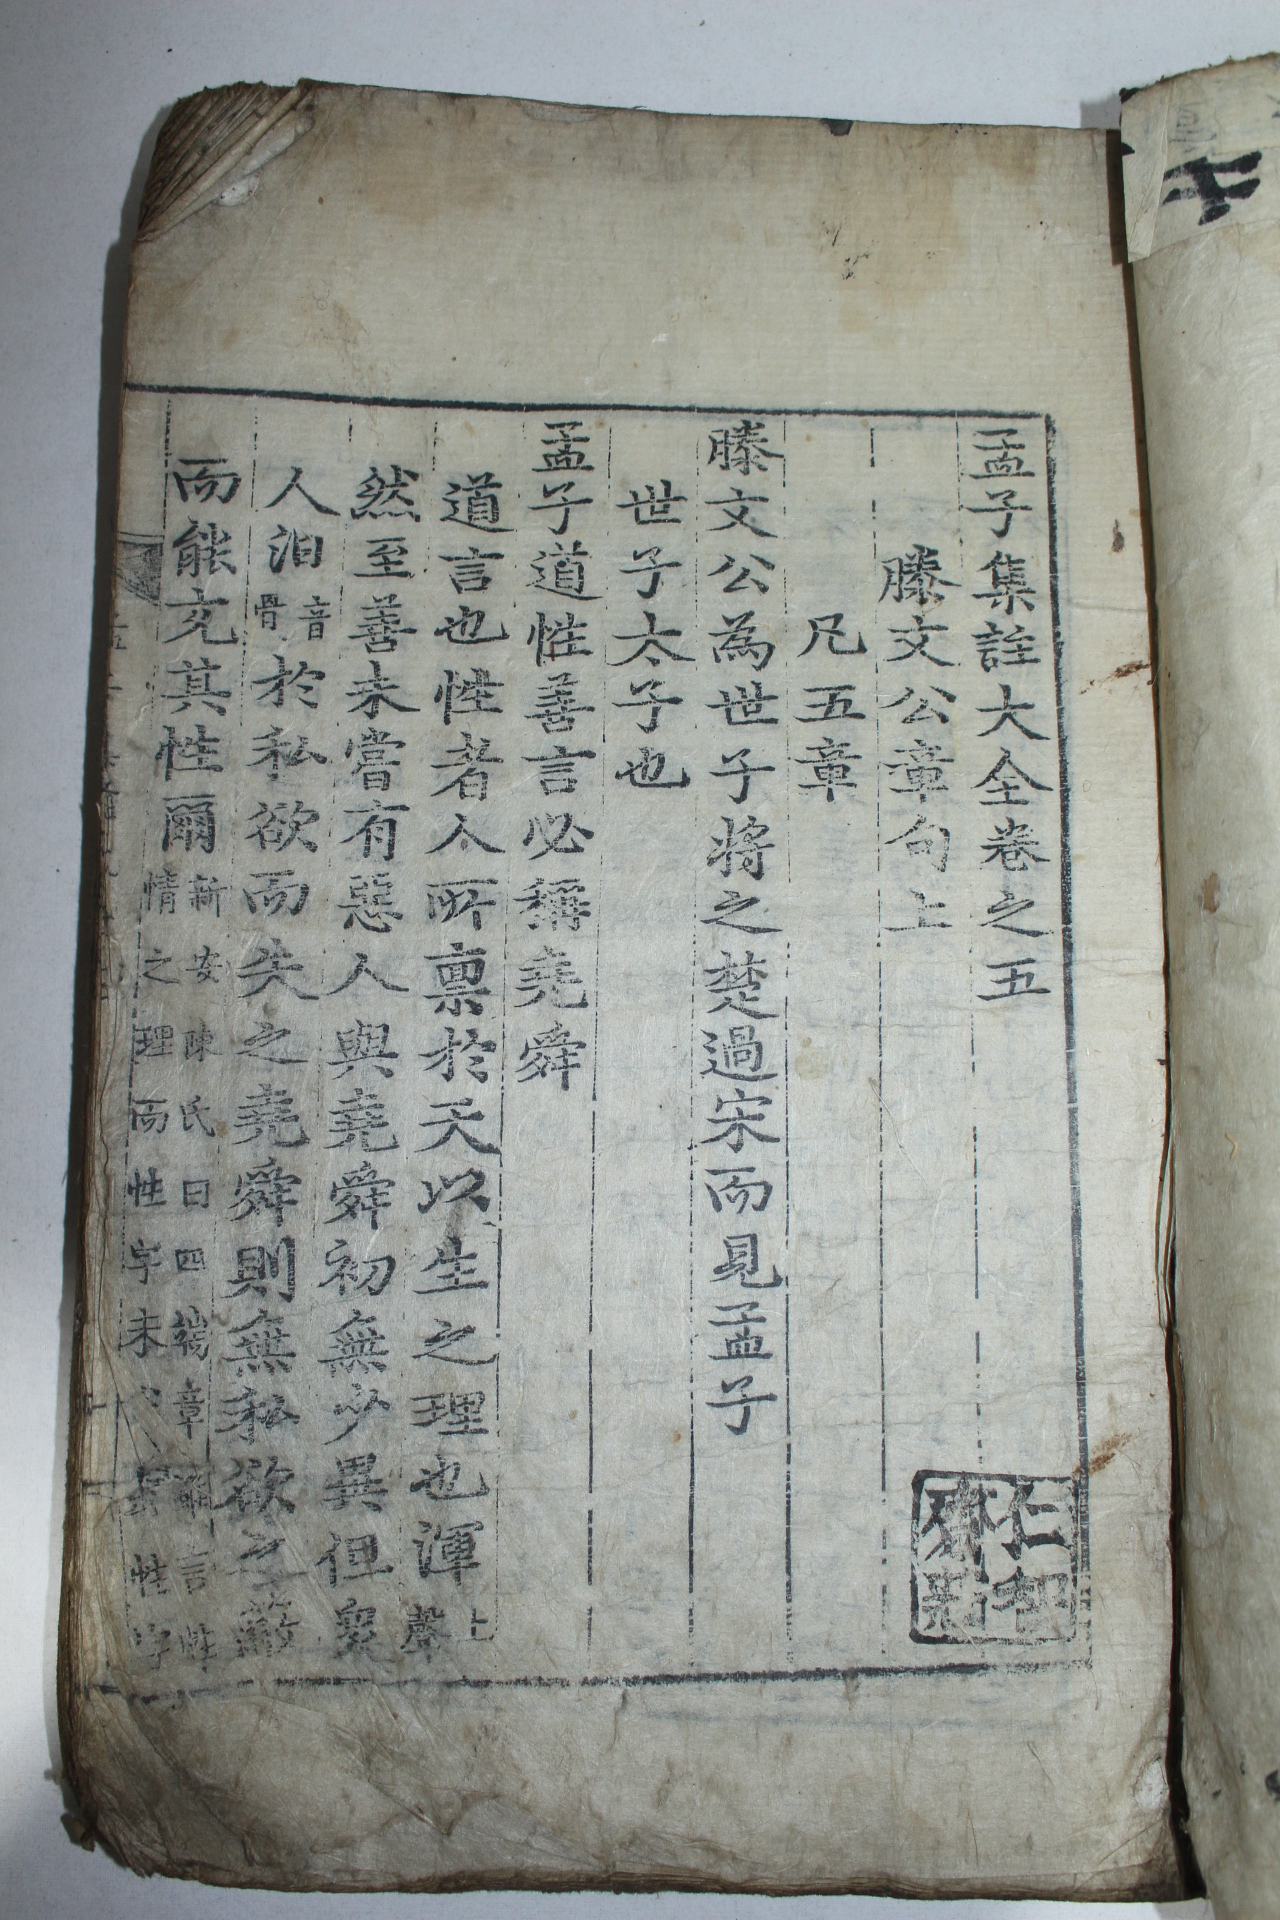 孟子集註大全卷之五
滕文公章句上
凡五章
滕文公為世子將之楚過宋而見孟子
世子太子也
孟子道性善言必稱堯舜
道言也性者人所禀於天以生之理也渾上聲
然至善未嘗有惡人與堯舜初無少異但衆
人汩音骨於私欲而失之堯舜則無私欲之蔽
而能充其性爾新安陳氏曰四端章
情之理而性字未